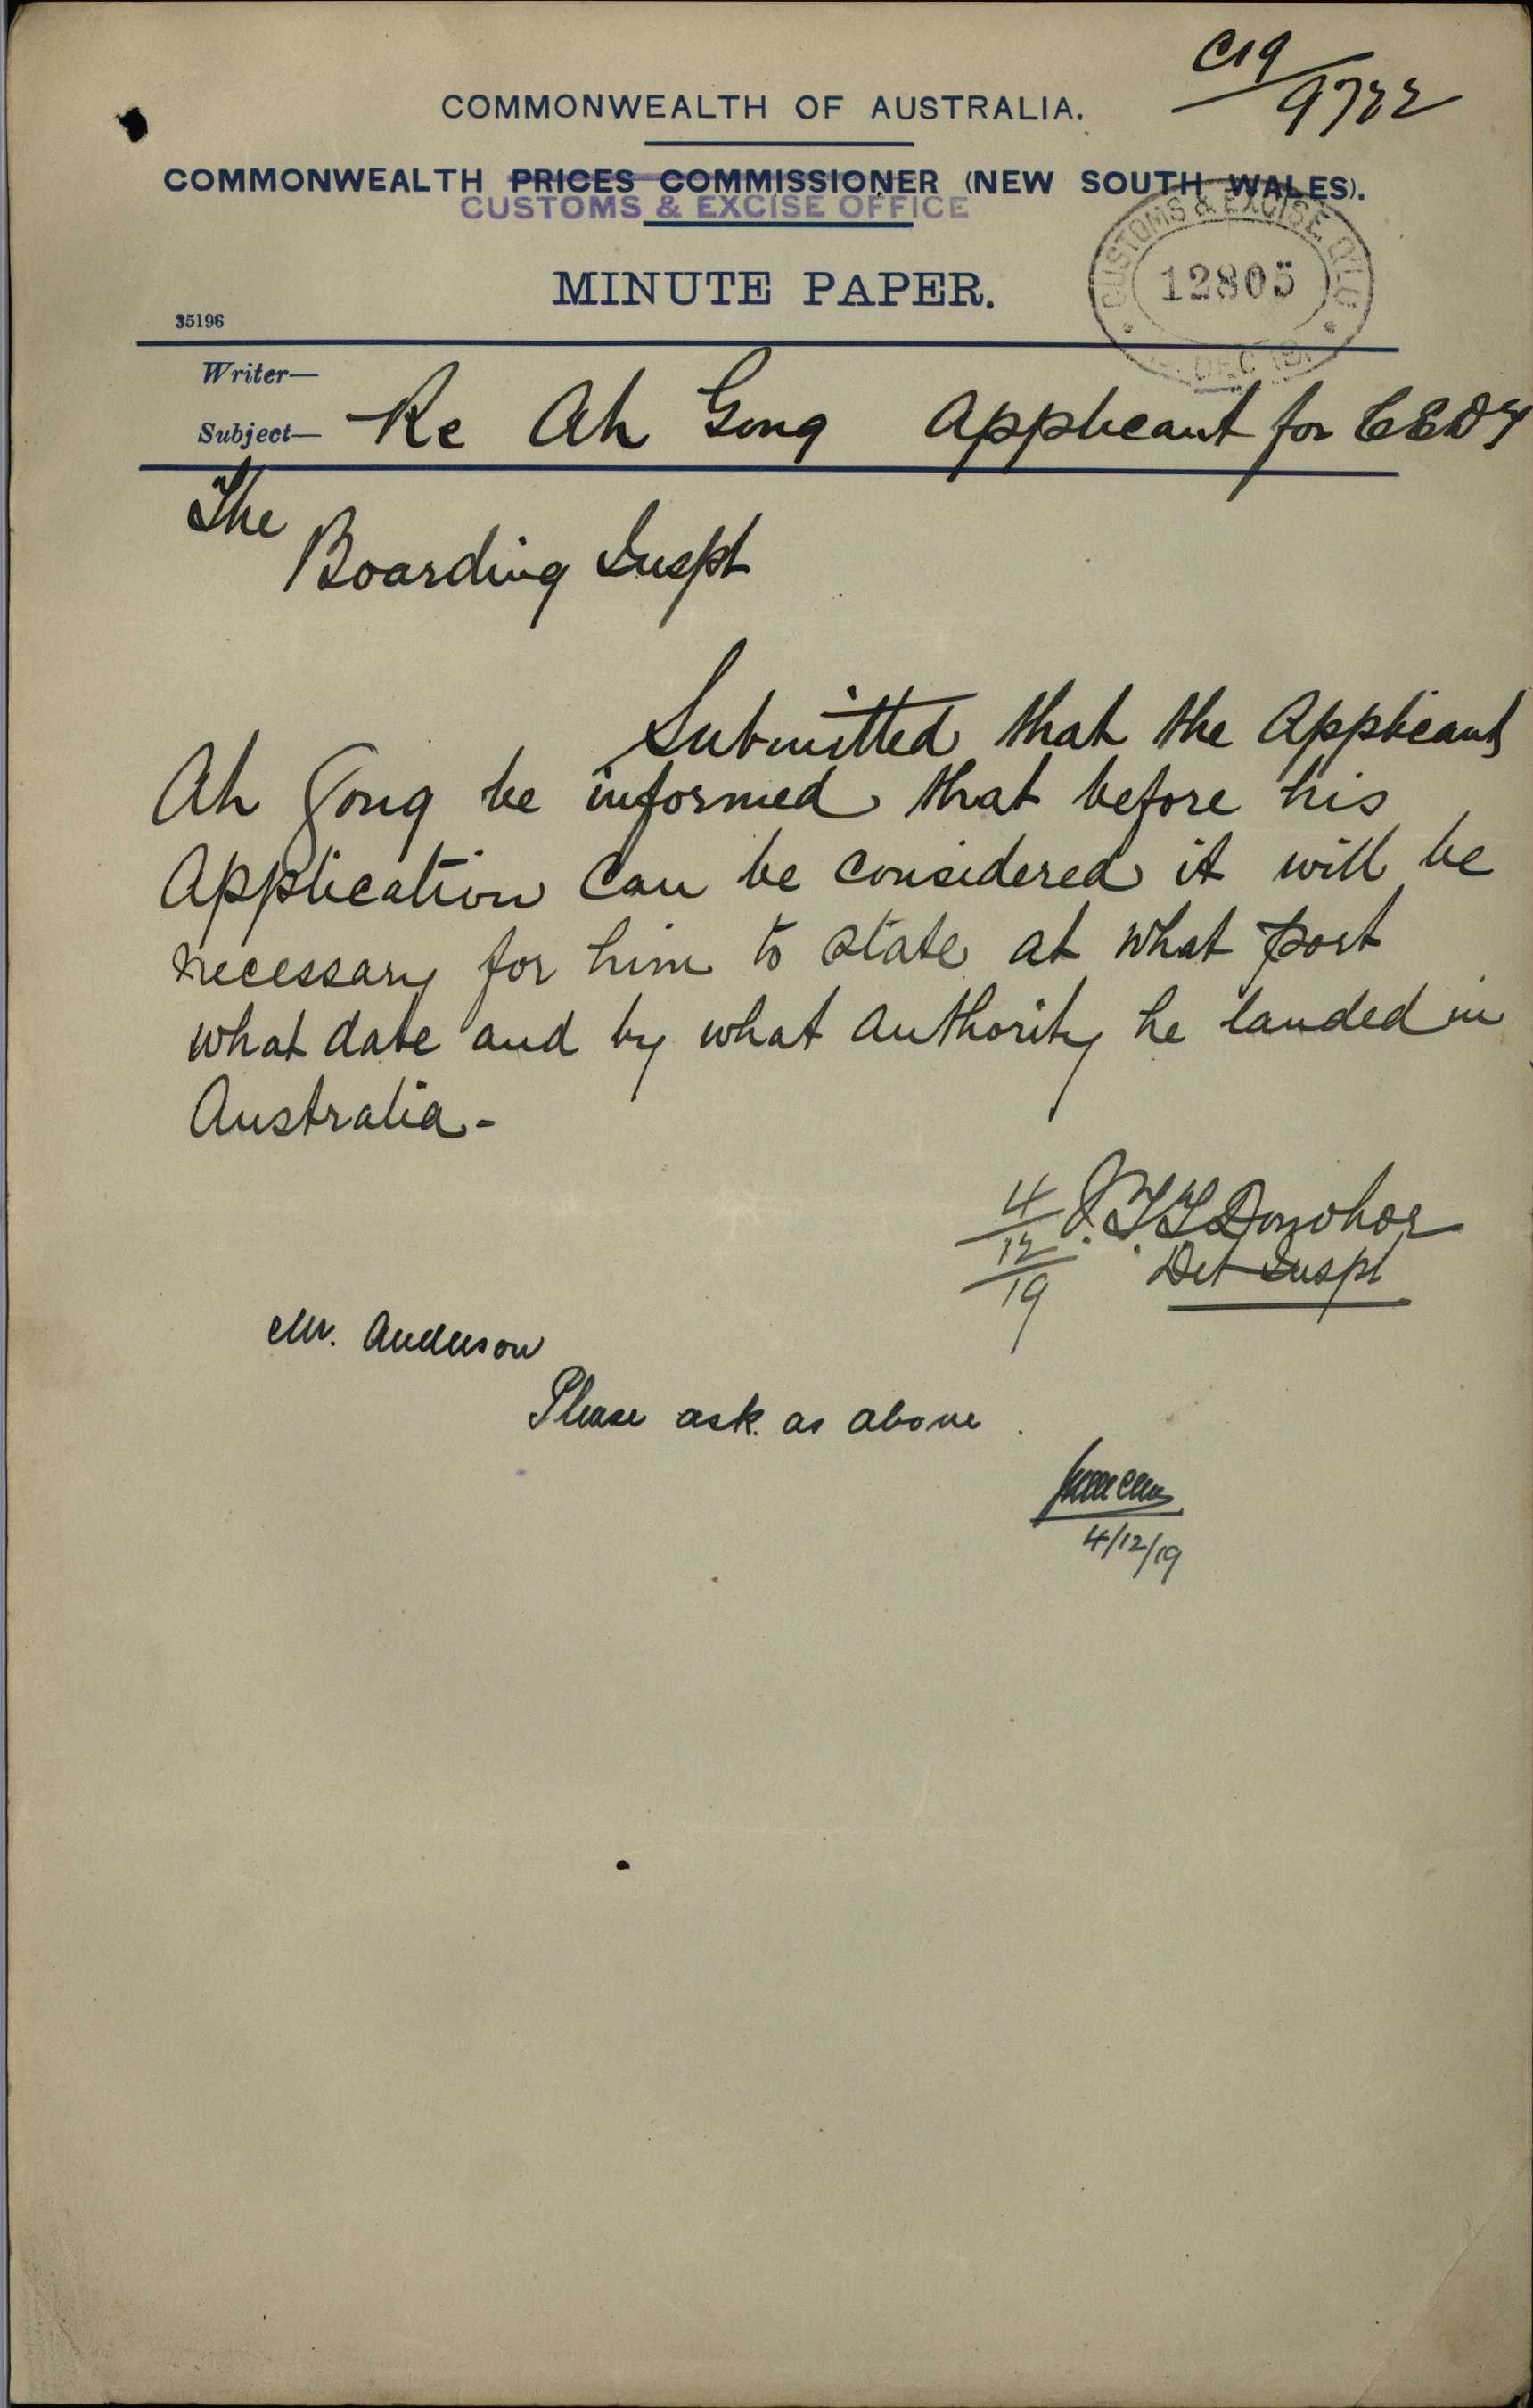 C19/9722
COMMONWEALTH OF AUSTRALIA.
COMMONWEALTH PRICES COMMISSIONER (NEW SOUTH WALES).
CUSTOMS & EXCISE OFFICE
MINUTE PAPER.
CUSTOMS & EXCISE
12805
DEC 19
35196
Writer—
Subject— Re Ah Gong Applicant for CEDT
The
Boarding Inspt
Submitted that the Applicant
Ah Gong be informed that before his
Application can be considered it will be
necessary for him to state at what port
what date and by what authority he landed in
Australia -
4/12/19 J.T.T. Donohoe
Det Inspt
Mr. Anderson
Please ask as above.
4/12/19